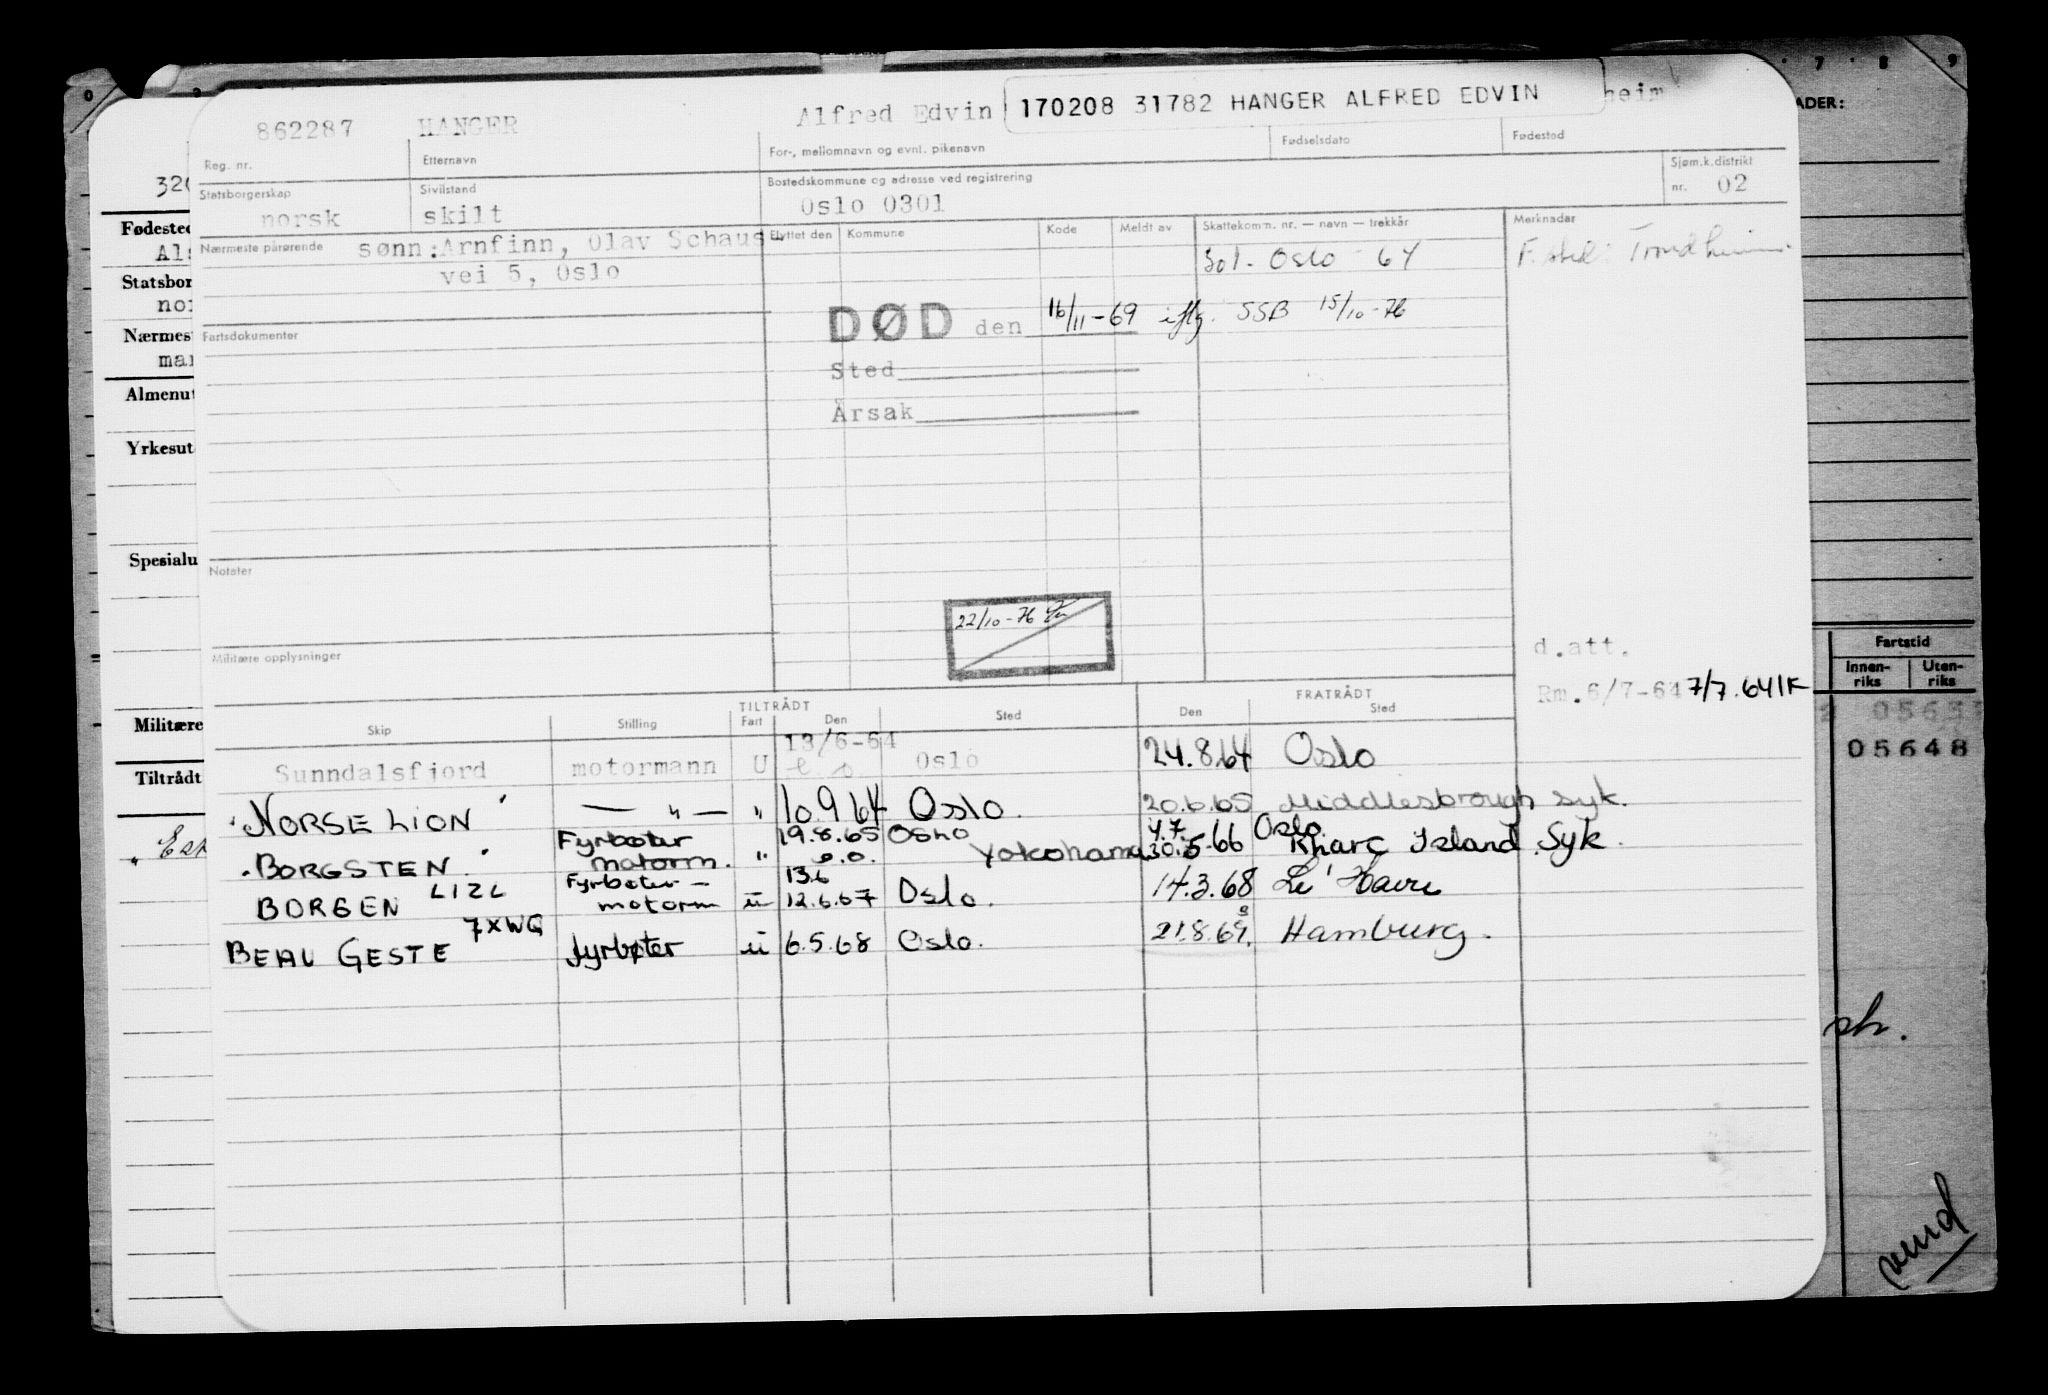 862287 HANGER Alfred Edvin 170208 31782 HANGER ALFRED EDVIN heim
Reg. nr. Etternavn For-, mellomnavn og evnt. pikenavn Fødselsdato Fødested
Statsborgerskap Sivilstand Bostedskommune og adresse ved registrering Sjøm.k.distrikt
norsk skilt Oslo 0301 nr. 02
Nærmeste pårørende sønn: Arnfinn, Olav Schaus Flyttet den Kommune Kode Meldt av Skattekomm. nr. — navn — trekkår Merknader
vei 5, Oslo 301 - Oslo - 64 F.sted: Trondheim
DØD den 16/11-69 iflg. SSB 15/10-76
Fartsdokumenter
Sted
Årsak
Notater
22/10-76
Militære opplysninger
d.att.
Rm. 6/7-64 7/7.64 IK
TILTRÅDT FRATRÅDT
Skip Stilling Fart Den Sted Den Sted
Sunndalsfjord motormann U 13/6-64 Oslo 24.8.64 Oslo
"NORSE LION" — " — " 10.9.64 Oslo. 20.6.65 Middlesbrough syk.
"BORGSTEN" Fyrbøter motorm. " 19.8.65 Oslo Yokohama 4.7. 30.5.66 Oslo Kharg Island Syk.
BORGEN LIZL Fyrbøter - motorm u 13.6 12.6.67 Oslo. 14.3.68 Le Havre
BEAU GESTE 7XWG fyrbøter u 6.5.68 Oslo. 21.8.69. Hamburg.
0
7 8 9
ADER:
320
Fødested
Als
Statsbor
nor
Nærmest
mar
Almenut
Yrkesut
Spesialu
Militære
Tiltrådt
Fartstid
Innen-riks Uten-riks
05648